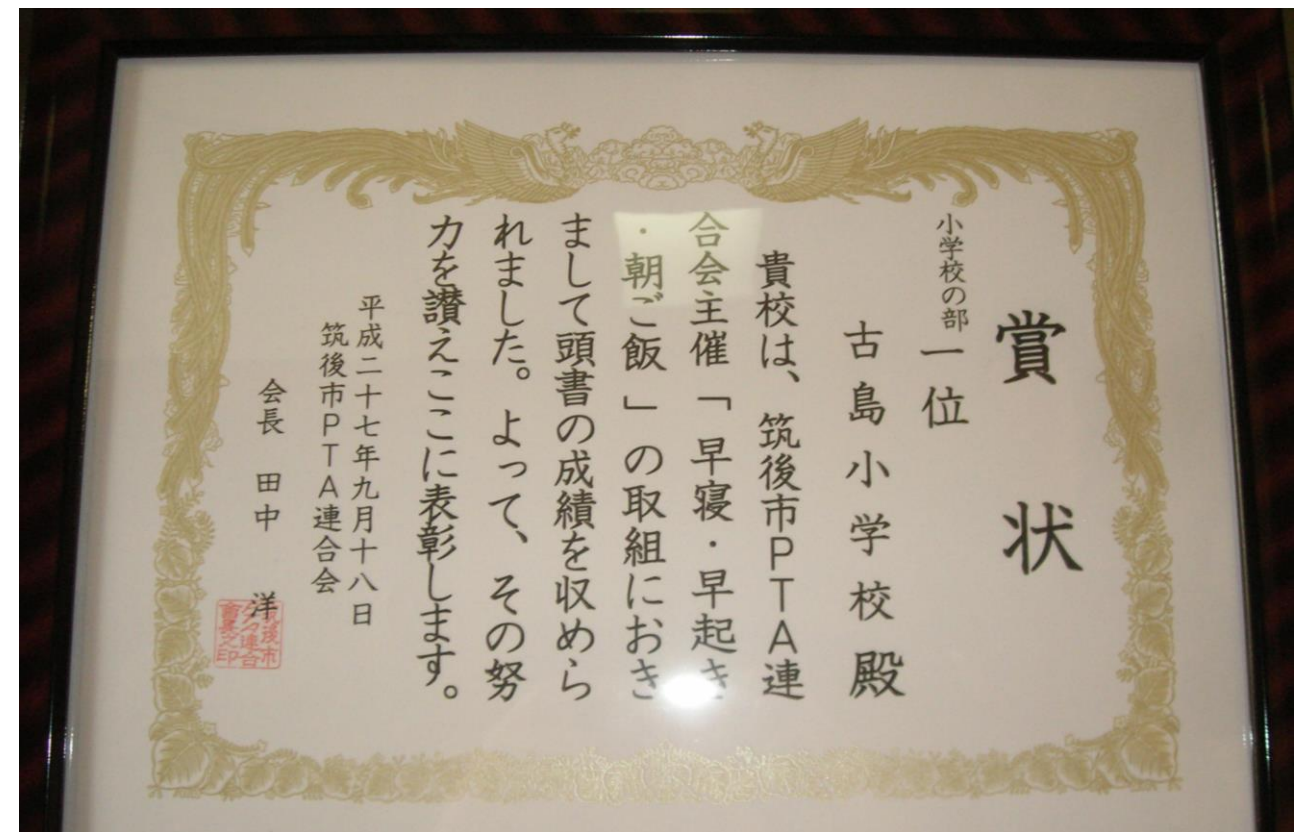 賞状
小学校の部 一位
古島小学校殿
貴校は、筑後市PTA連
合会主催「早寝・早起き
・朝ご飯」の取組におき
まして頭書の成績を収めら
れました。よって、その努
力を讃えここに表彰します。
平成二十七年九月十八日
筑後市PTA連合会
会長 田中 洋